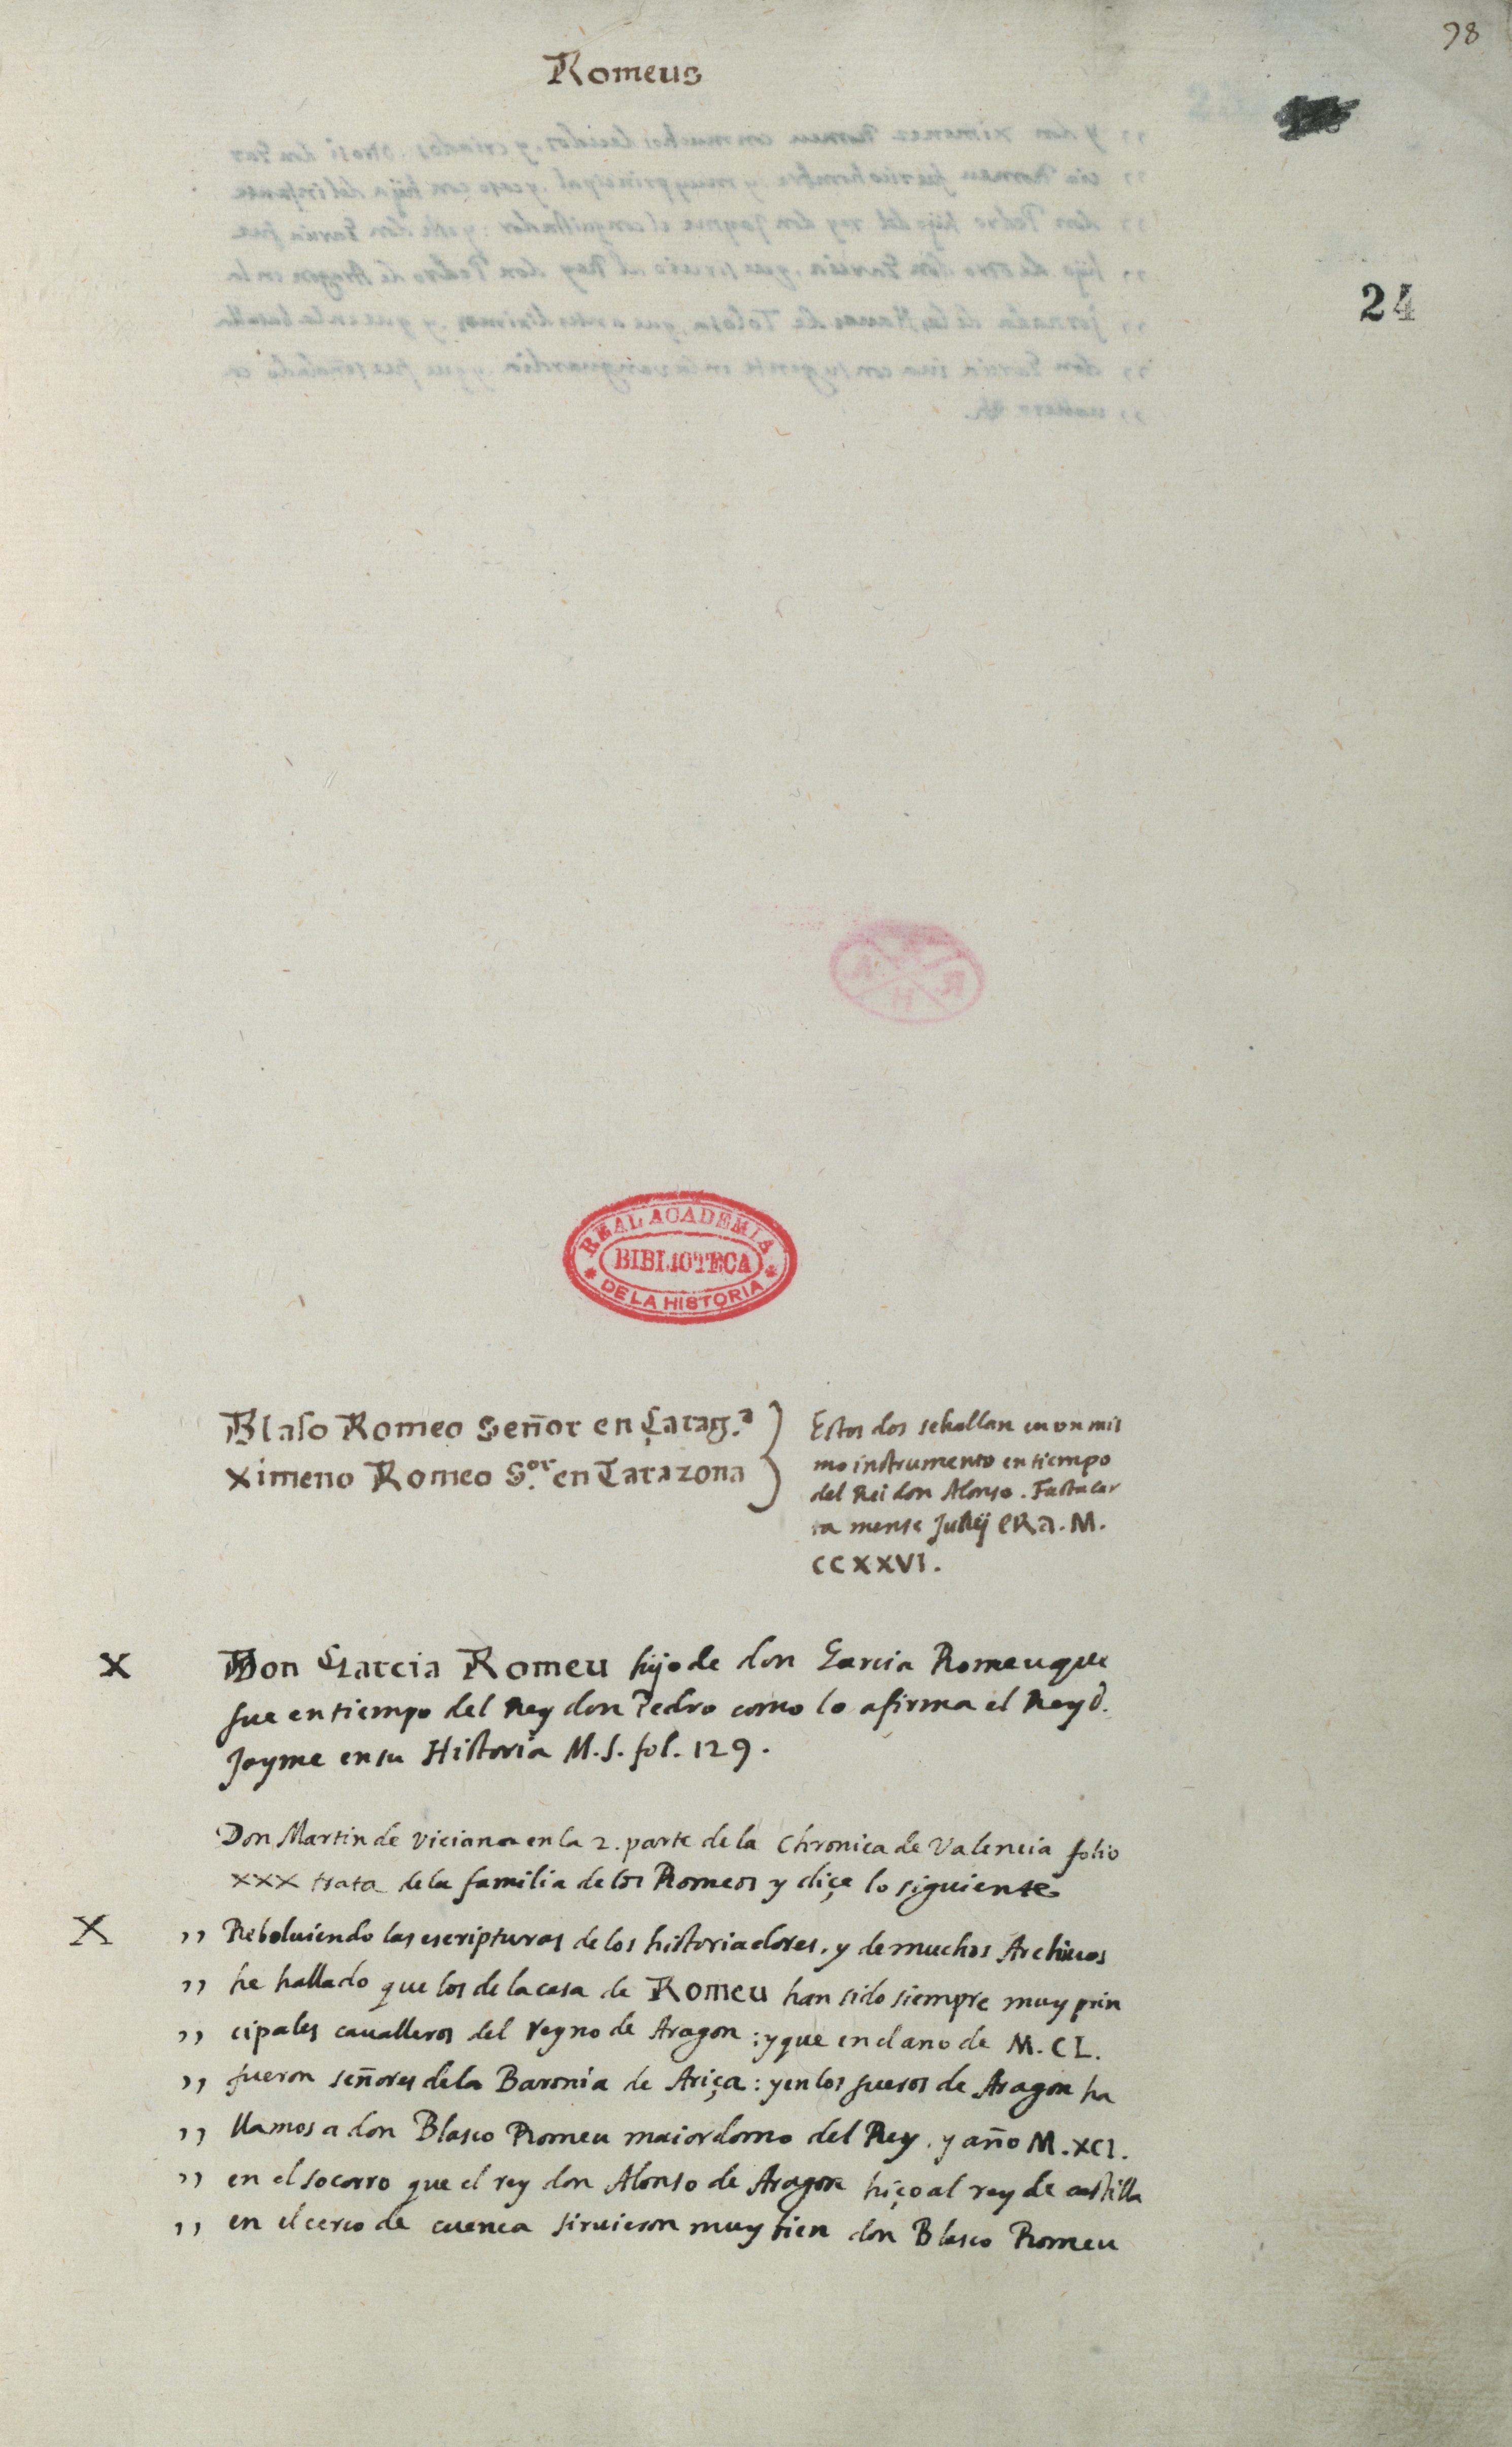 98
Romeus
24
REAL ACADEMIA
BIBLIOTECA
DE LA HISTORIA
Blaſo Romeo Señor en Çarag.ª
Ximeno Romeo S.ᵒʳ en Tarazona
Estos dos se hallan en vn mis
mo instrumento en tiempo
del Rei don Alonso. Facta car
ta mense Julij eRa. M.
CCXXVI.
X Don Garcia Romeu hijo de don Garcia Romeu que
fue en tiempo del Rey don Pedro como lo afirma el Rey d.
Jayme en su Historia M.S. fol. 129.
Don Martin de Viciana en la 2. parte de la Chronica de Valencia folio
XXX trata de la familia de los Romeos y diçe lo siguiente
X ,, Reboluiendo las escripturas de los historiadores, y de muchos Archiuos
,, he hallado que los de la casa de Romeu han sido siempre muy prin
,, cipales caualleros del reyno de Aragon: y que en el ano de M.CL.
,, fueron señores de la Baronia de Ariça: y en los fueros de Aragon ha
,, llamos a don Blasco Romeu maiordomo del Rey. y año M.XCI.
,, en el socorro que el rey don Alonso de Aragon hiço al rey de castilla
,, en el cerco de cuenca siruieron muy bien don Blasco Romeu